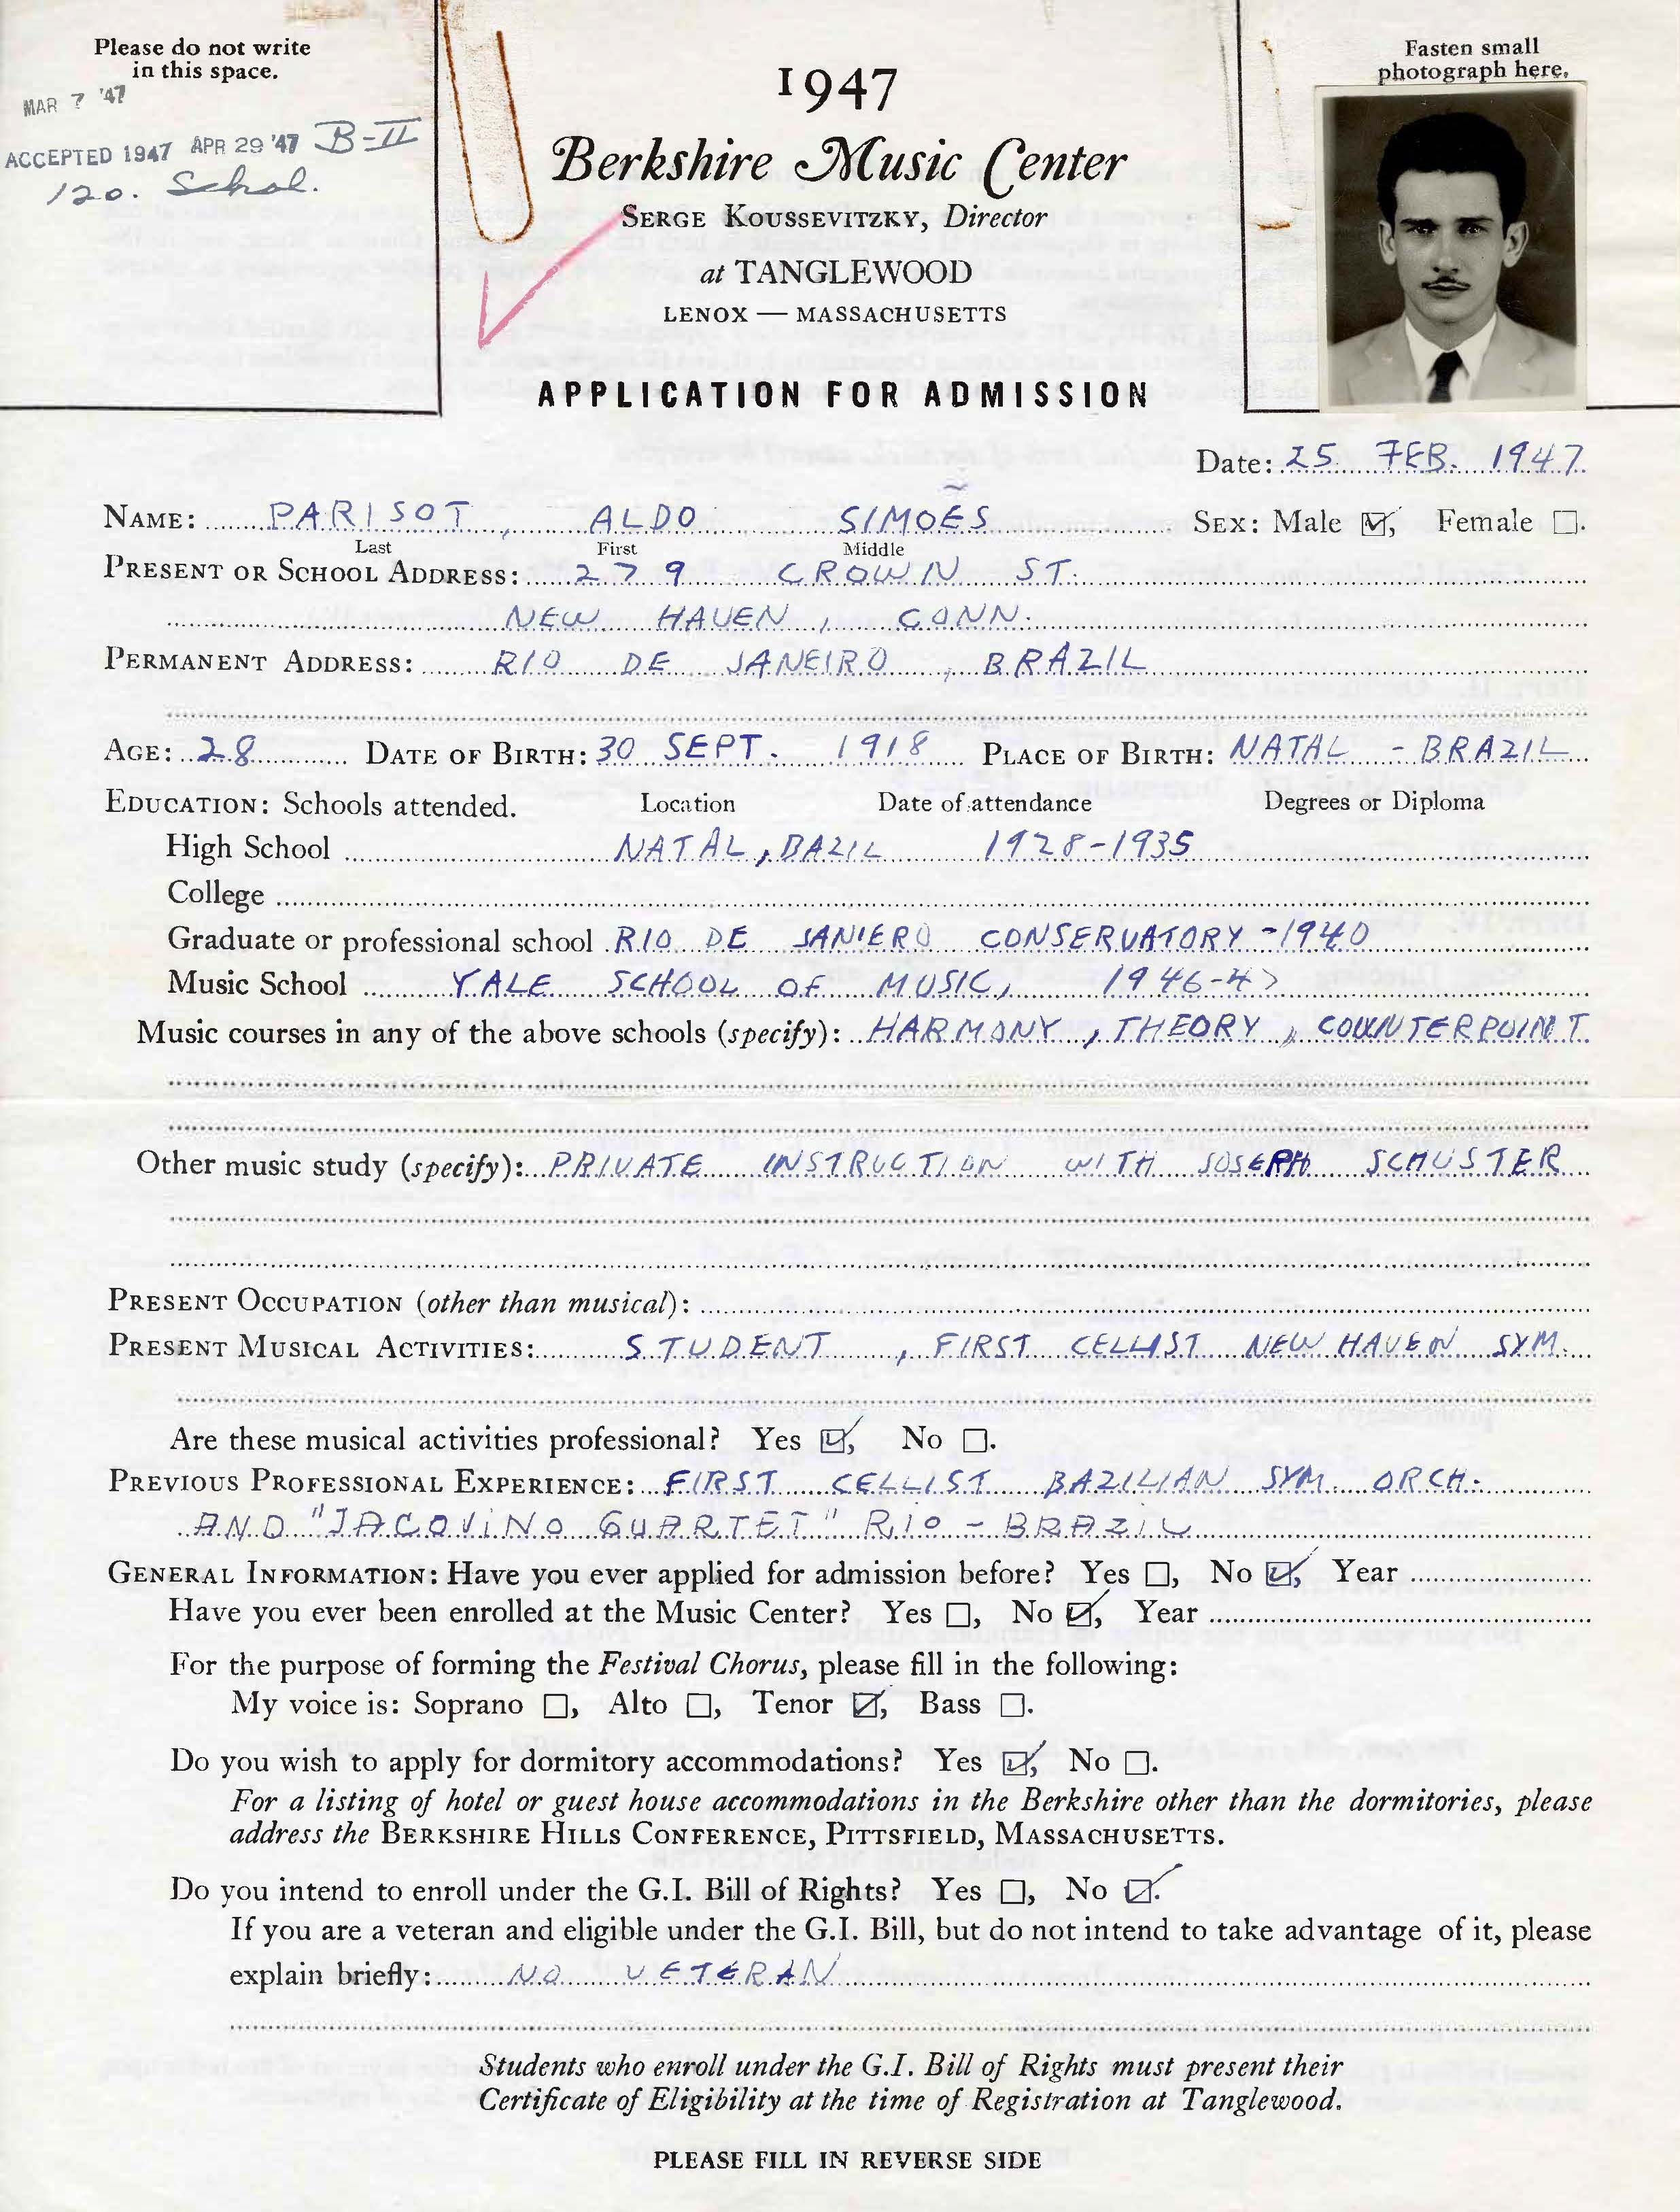 Please do not write
in this space.
MAR 7 '47
ACCEPTED 1947 APR 29 '47 B-II
120. Schol.
Fasten small
photograph here.
1947
Berkshire Music Center
SERGE KOUSSEVITZKY, Director
at TANGLEWOOD
LENOX — MASSACHUSETTS
APPLICATION FOR ADMISSION
Date: 25 FEB. 1947
NAME: PARISOT, ALDO SIMOES SEX: Male ☑, Female ☐.
Last First Middle
PRESENT OR SCHOOL ADDRESS: 279 CROWN ST.
NEW HAVEN, CONN.
PERMANENT ADDRESS: RIO DE JANEIRO, BRAZIL
AGE: 28 DATE OF BIRTH: 30 SEPT. 1918 PLACE OF BIRTH: NATAL - BRAZIL
EDUCATION: Schools attended. Location Date of attendance Degrees or Diploma
High School NATAL, BAZIL 1928-1935
College
Graduate or professional school RIO DE JANIERO CONSERVATORY - 1940
Music School YALE SCHOOL OF MUSIC, 1946-47
Music courses in any of the above schools (specify): HARMONY, THEORY, COUNTERPOINT.
Other music study (specify): PRIVATE INSTRUCTION WITH JOSEPH SCHUSTER
PRESENT OCCUPATION (other than musical):
PRESENT MUSICAL ACTIVITIES: STUDENT, FIRST CELLIST NEW HAVEN SYM.
Are these musical activities professional? Yes ☑, No ☐.
PREVIOUS PROFESSIONAL EXPERIENCE: FIRST CELLIST BAZILIAN SYM. ORCH.
AND "JACOViNO QUARTET" RiO - BRAZiL
GENERAL INFORMATION: Have you ever applied for admission before? Yes ☐, No ☑, Year
Have you ever been enrolled at the Music Center? Yes ☐, No ☑, Year
For the purpose of forming the Festival Chorus, please fill in the following:
My voice is: Soprano ☐, Alto ☐, Tenor ☑, Bass ☐.
Do you wish to apply for dormitory accommodations? Yes ☑, No ☐.
For a listing of hotel or guest house accommodations in the Berkshire other than the dormitories, please
address the BERKSHIRE HILLS CONFERENCE, PITTSFIELD, MASSACHUSETTS.
Do you intend to enroll under the G.I. Bill of Rights? Yes ☐, No ☑.
If you are a veteran and eligible under the G.I. Bill, but do not intend to take advantage of it, please
explain briefly: NO VETERAN
Students who enroll under the G.I. Bill of Rights must present their
Certificate of Eligibility at the time of Registration at Tanglewood.
PLEASE FILL IN REVERSE SIDE